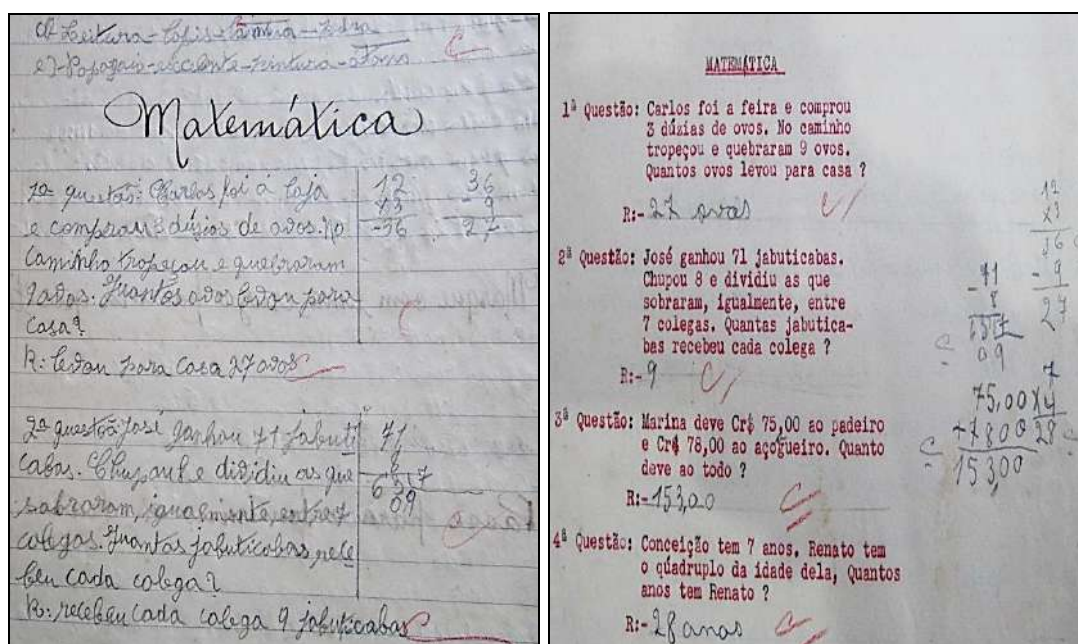 d) Leitura - lapis - tâmbra - zebra
e) - Papagaio - excelente - pintura - átomo
Matemática
1ª questão: Carlos foi á loja
e comprou 3 dúsias de ovos. No
caminho tropeçou e quebraram
9 ovos. Quantos ovos levou para
casa?
12
x3
-36
36
- 9
27
R: levou para casa 27 ovos
2ª questão José ganhou 71 jabuti
cabas. Chupou 8 e dividiu as que
sobraram, igualmente, entre 7
colegas. Quantas jabuticabas, rece
beu cada colega?
71
8
63 7
09
R: recebeu cada colega 9 jabuticabas
MATEMÁTICA
1ª Questão: Carlos foi a feira e comprou
3 dúzias de ovos. No caminho
tropeçou e quebraram 9 ovos.
Quantos ovos levou para casa ?
R:- 27 ovos
12
x3
36
- 9
27
2ª Questão: José ganhou 71 jabuticabas.
Chupou 8 e dividiu as que
sobraram, igualmente, entre
7 colegas. Quantas jabutica-
bas recebeu cada colega ?
R:- 9
- 71
8
09
3ª Questão: Marina deve Cr$ 75,00 ao padeiro
e Cr$ 78,00 ao açogueiro. Quanto
deve ao todo ?
R:- 153,00
75,00
+7800
153,00
7
x4
28
4ª Questão: Conceição tem 7 anos. Renato tem
o quádruplo da idade dela, Quantos
anos tem Renato ?
R:- 28 anos